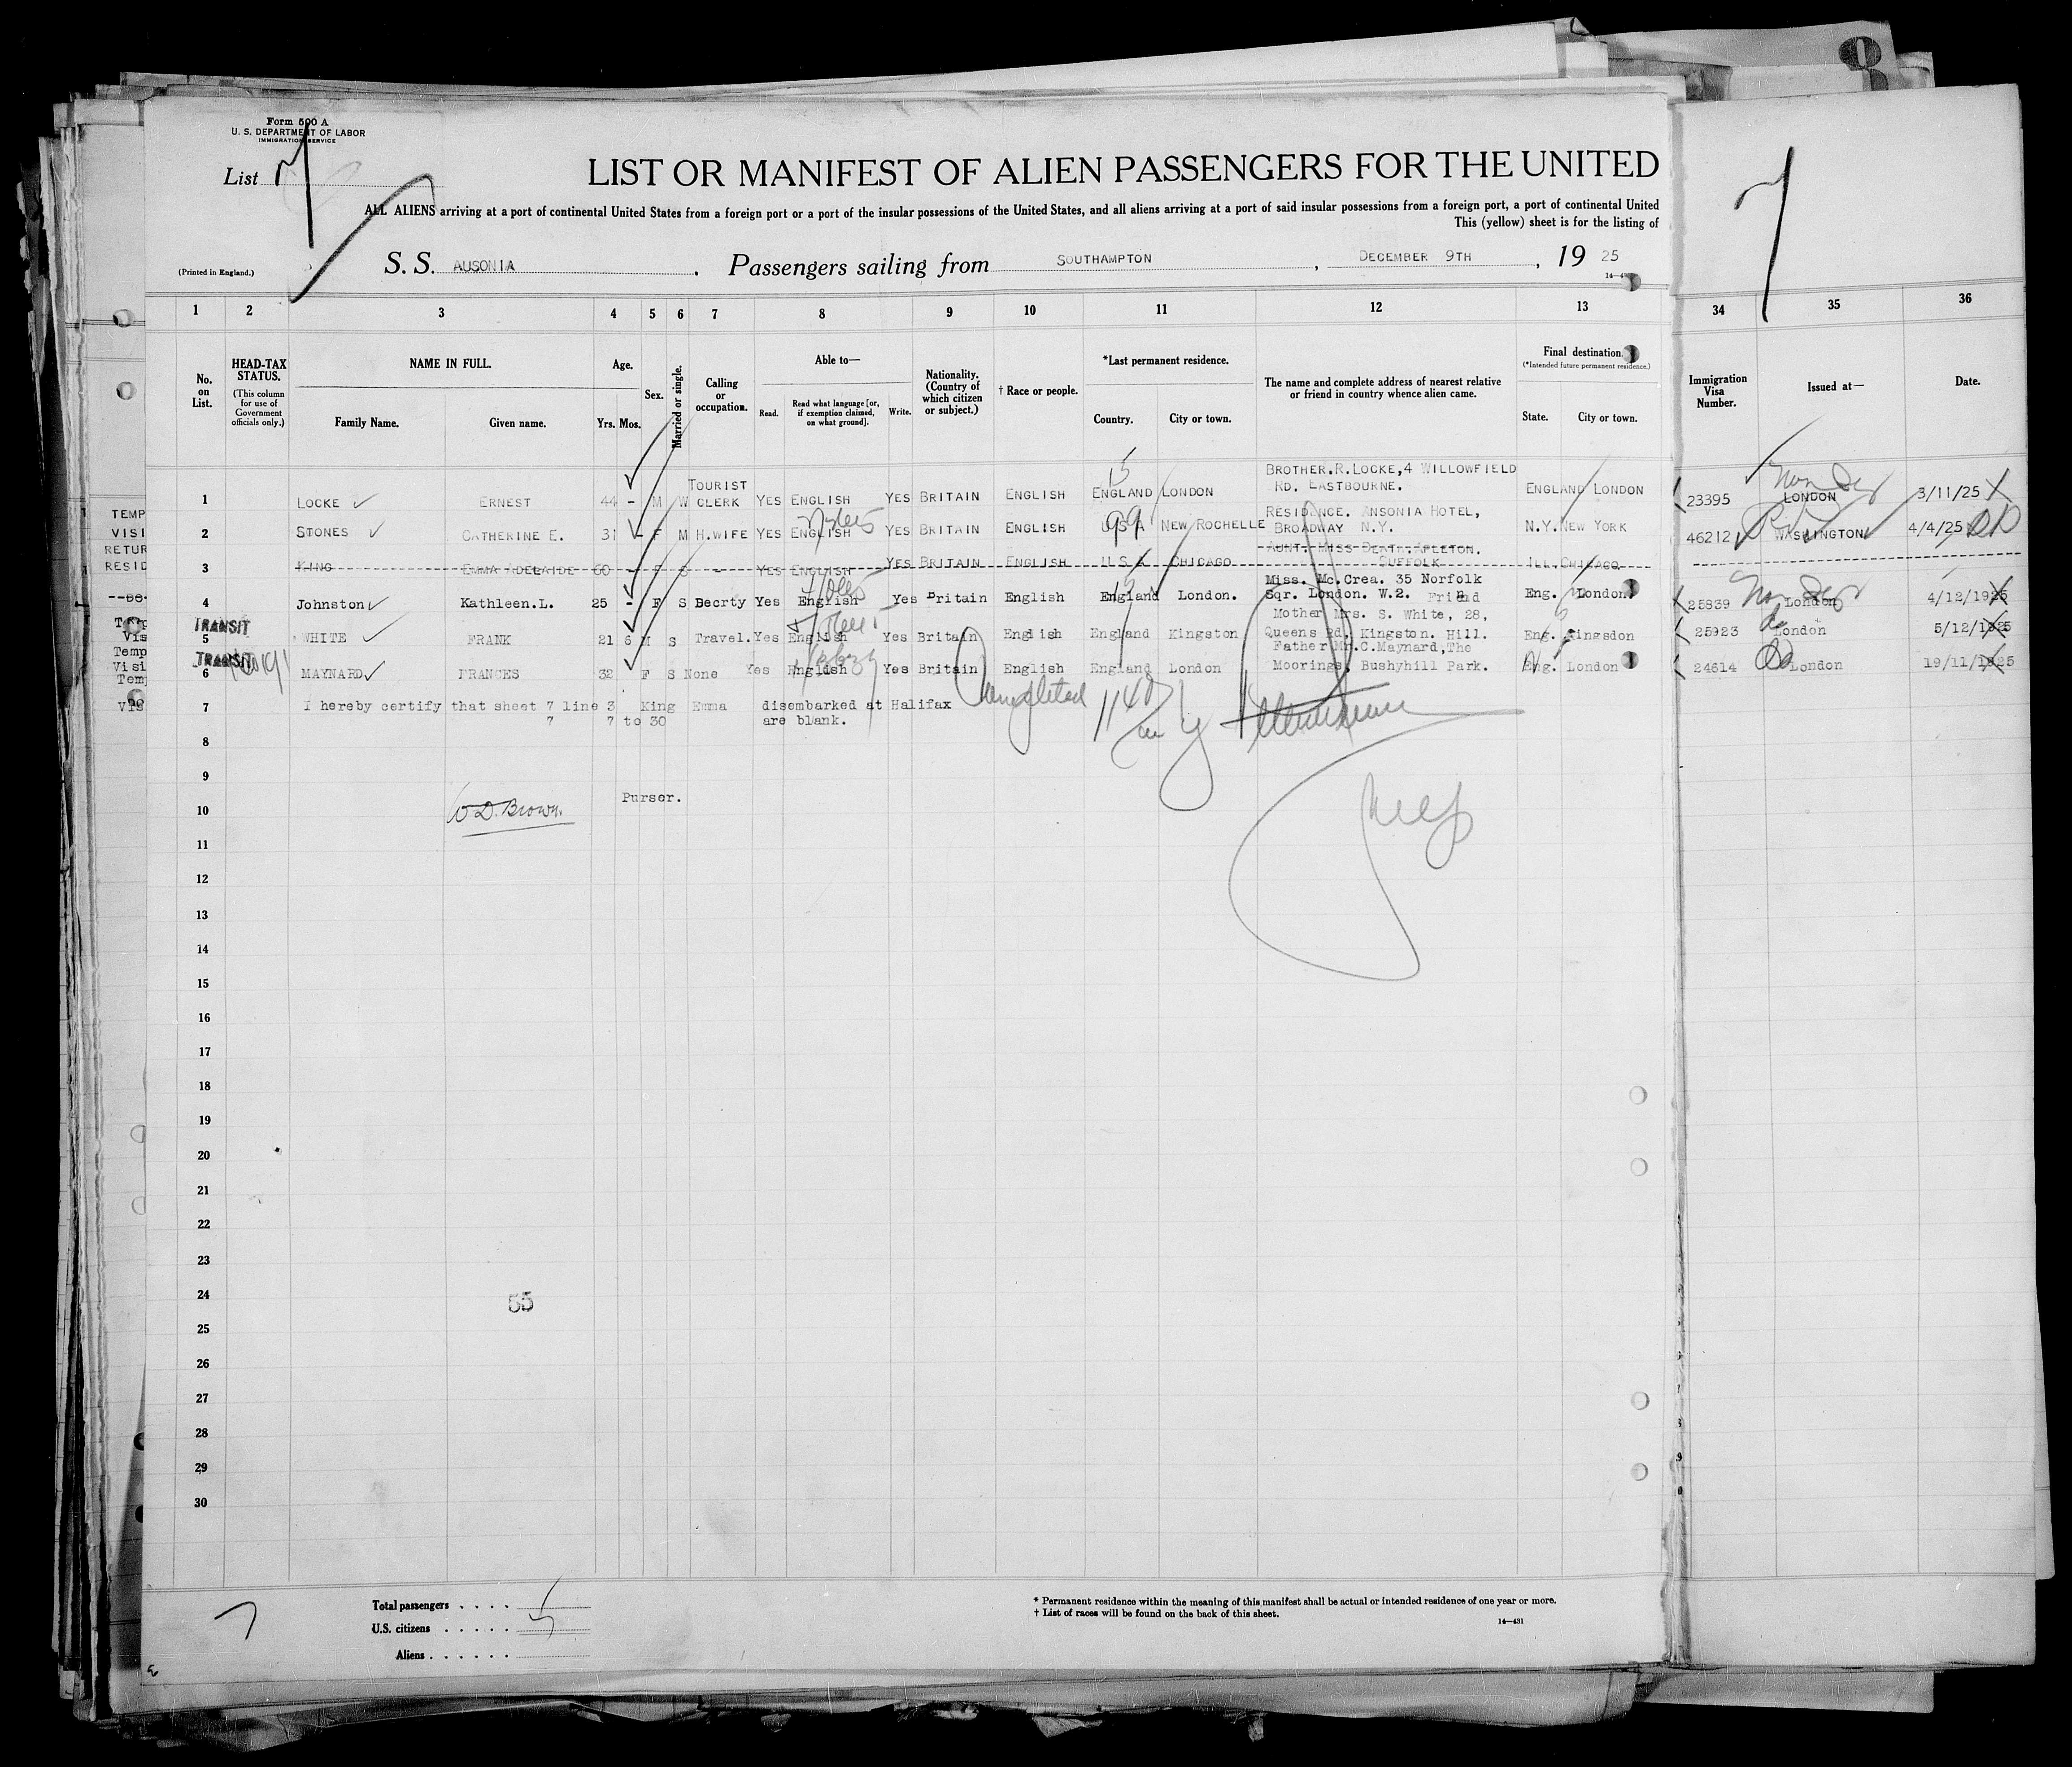 8
Form 500 A
U. S. DEPARTMENT OF LABOR
IMMIGRATION SERVICE
List 7
LIST OR MANIFEST OF ALIEN PASSENGERS FOR THE UNITED
7
ALL ALIENS arriving at a port of continental United States from a foreign port or a port of the insular possessions of the United States, and all aliens arriving at a port of said insular possessions from a foreign port, a port of continental United
This (yellow) sheet is for the listing of
(Printed in England.) S. S. AUSONIA , Passengers sailing from SOUTHAMPTON , DECEMBER 9TH , 19 25
1 2 3 4 5 6 7 8 9 10 11 12 13 34 35 36
No. on List. HEAD-TAX STATUS. (This column for use of Government officials only.) NAME IN FULL. Family Name. Given name. Age. Yrs. Mos. Sex. Married or single. Calling or occupation. Able to— Read. Read what language [or, if exemption claimed, on what ground]. Write. Nationality. (Country of which citizen or subject.) † Race or people. *Last permanent residence. Country. City or town. The name and complete address of nearest relative or friend in country whence alien came. Final destination. (*Intended future permanent residence.) State. City or town. Immigration Visa Number. Issued at— Date.
1 LOCKE ERNEST 44 - M W TOURIST CLERK YES ENGLISH YES BRITAIN ENGLISH ENGLAND LONDON BROTHER.R.LOCKE,4 WILLOWFIELD RD. EASTBOURNE. ENGLAND LONDON 23395 LONDON 3/11/25
2 STONES CATHERINE E. 31 - F M H.WIFE YES ENGLISH YES BRITAIN ENGLISH U S A NEW ROCHELLE RESIDENCE. ANSONIA HOTEL, BROADWAY N.Y. N.Y. NEW YORK 46212 WASHINGTON 4/4/25
3 KING EMMA ADELAIDE 60 - F S - YES ENGLISH YES BRITAIN ENGLISH U.S.A CHICAGO AUNT. MISS SUFFOLK ILL. CHICAGO
4 Johnston Kathleen.L. 25 - F S Decrty Yes English Yes Britain English England London. Miss. Mc.Crea. 35 Norfolk Sqr. London. W.2. Friend Eng. London. 25839 London 4/12/1925
TRANSIT
5 WHITE FRANK 21 6 M S Travel. Yes English Yes Britain English England Kingston Mother Mrs. S. White, 28, Queens Rd. Kingston. Hill. Eng. Kingsdon 25923 London 5/12/1925
TRANSIT
6 MAYNARD FRANCES 32 F S None Yes English Yes Britain English England London Father Mr.C.Maynard,The Moorings, Bushyhill Park. Eng. London 24614 London 19/11/1925
7 I hereby certify that sheet 7 line 3 King Emma disembarked at Halifax Completed
7 7 to 30 are blank.
8
9
Purser.
10 W D. Brown.
11
12
13
14
15
16
17
18
19
20
21
22
23
24
55
25
26
27
28
29
30
Total passengers . . . .
U.S. citizens . . . . .
Aliens . . . . . .
7
* Permanent residence within the meaning of this manifest shall be actual or intended residence of one year or more.
† List of races will be found on the back of this sheet.
14—431